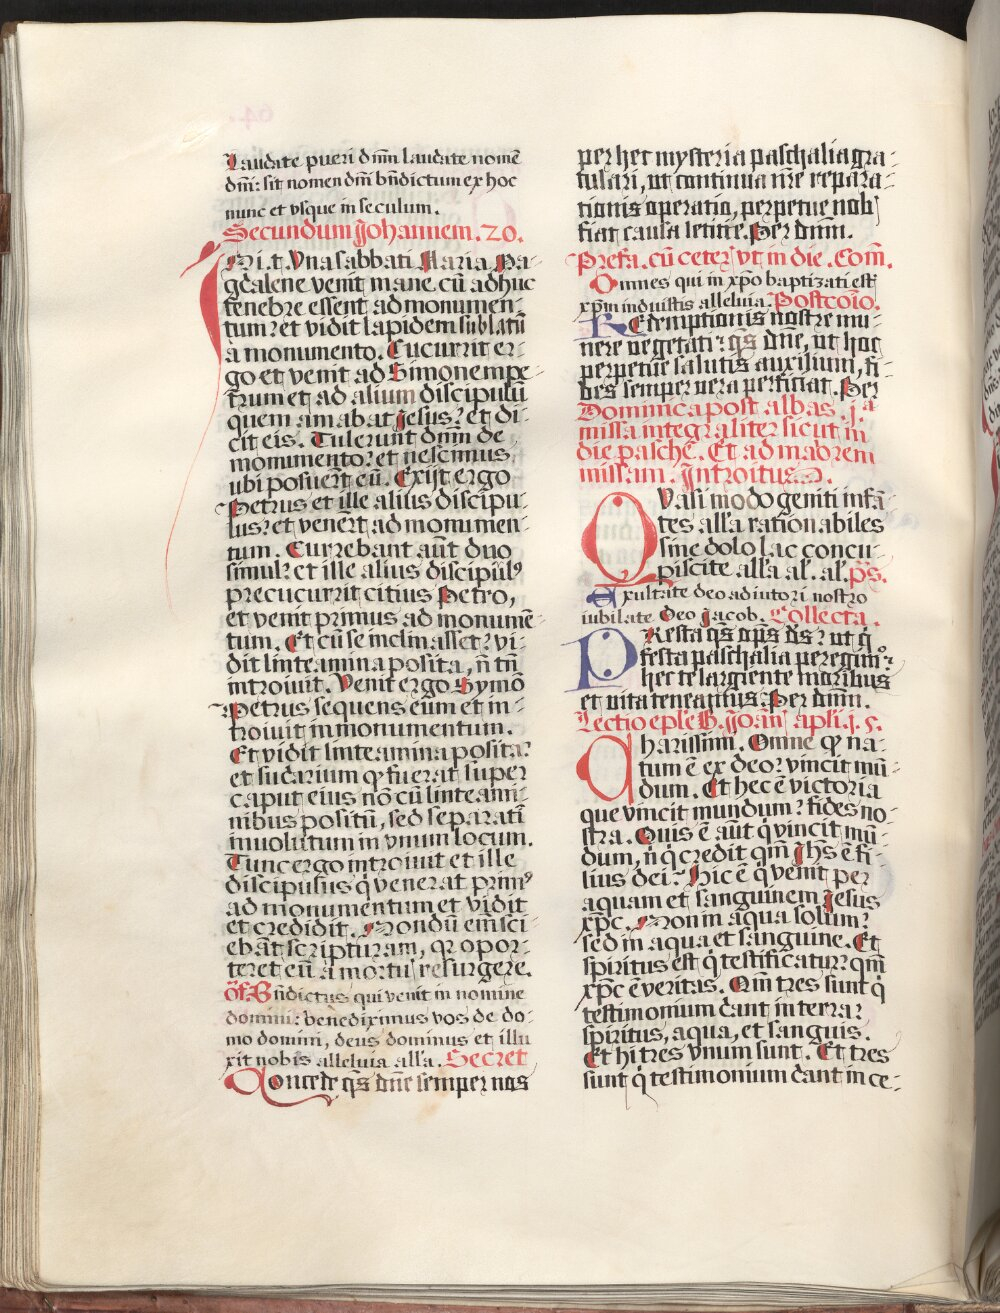 Laudate pueri dñm laudate nomē
dñi: sit nomen dñi bñdictum ex hoc
nunc et vsque in seculum.
Secundum Johannem. 20.
IN i. t. Vna sabbati Maria Ma-
gdalene venit mane cū adhuc
tenebre essent ad monumen-
tum: et vidit lapidem sublatū
a monumento. Cucurrit er-
go et venit ad Simonem pe-
trum et ad alium discipulū
quem amabat Jesus: et di-
cit eis. Tulerunt dñm de
monumento: et nescimus
ubi posuert eū. Exijt ergo
Petrus et ille alius discipu-
lus: et venert ad monumen-
tum. Currebant aūt duo
simul: et ille alius discipulꝰ
precucurrit citius Petro,
et venit primus ad monumē-
tum. Et cū se inclinasset: vi-
dit linteamina posita, ñ tñ
introiuit. Venit ergo Symō
Petrus sequens eum et in-
troiuit in monumentum.
Et vidit linteamina posita:
et sudarium qꝫ fuerat super
caput eius nō cū linteami-
nibus positū, sed separati
inuolutum in vnum locum.
Tunc ergo introiuit et ille
discipulus q̇ venerat primꝰ
ad monumentum et vidit
et credidit. Nondū em̄ sci-
ebāt scripturam, qꝛ opor-
teret eū a mortuis resurgere.
Of. Bñdictus qui venit in nomine
domini: benediximus vos de do-
mo domini, deus dominus et illu
xit nobis alleluia alla. Secret
Concede qs̄ dñe semper nos
per hec mysteria paschalia gra-
tulari, ut continua nr̄e repara-
tionis operatio, perpetue nobis
fiat causa letitie. Per dnm.
Prefa. cū ceter̄ vt in die. Com̄.
Omnes qui in xp̄o baptizati estis
xp̄m induistis alleluia. Postcoīo.
Redemptionis nostre mu-
nere vegetati: qs̄ dñe, ut hoc
perpetue salutis auxilium, fi-
des semper uera perficiat. Per
Dominica post albas. j.ᵃ
missa integraliter sicut in
die pasche. Et ad maiorem
missam. Introitus.
QVasi modo geniti infā-
tes alla rationabiles
sine dolo lac concu-
piscite alla al. al. ps.
Exultate deo adiutori nostro
iubilate Deo Jacob. Collecta.
PResta qs̄ op̄s ds̄: ut q̇
festa paschalia peregim⁹:
hec te largiente moribus
et uita teneamus. Per dnm.
Lectio epl̄e B. Joañ apl̄i. j. 5.
Charissimi. Omne qꝫ na-
tum ē ex deo: vincit mū-
dum. Et hec ē victoria
que vincit mundum: fides no-
stra. Quis ē aūt q̇ vincit mū-
dum, ñ q̇ credit qm̄ Jhs ē fi-
lius dei: Hic ē q̇ venit per
aquam et sanguinem Jesus
xp̄c. Non in aqua solum:
sed in aqua et sanguine. Et
spiritus est q̇ testificatur: qm̄
xp̄c ē veritas. Qm̄ tres sunt q̇
testimonium dant in terra:
spiritus, aqua, et sanguis.
Et hi tres vnum sunt. Et tres
sunt q̇ testimonium dant in ce-